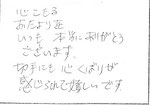 心こもる
あたより を
いつも 本当にありがとう
ございます。
切手にも 心くばりが
感じられて嬉しいです。